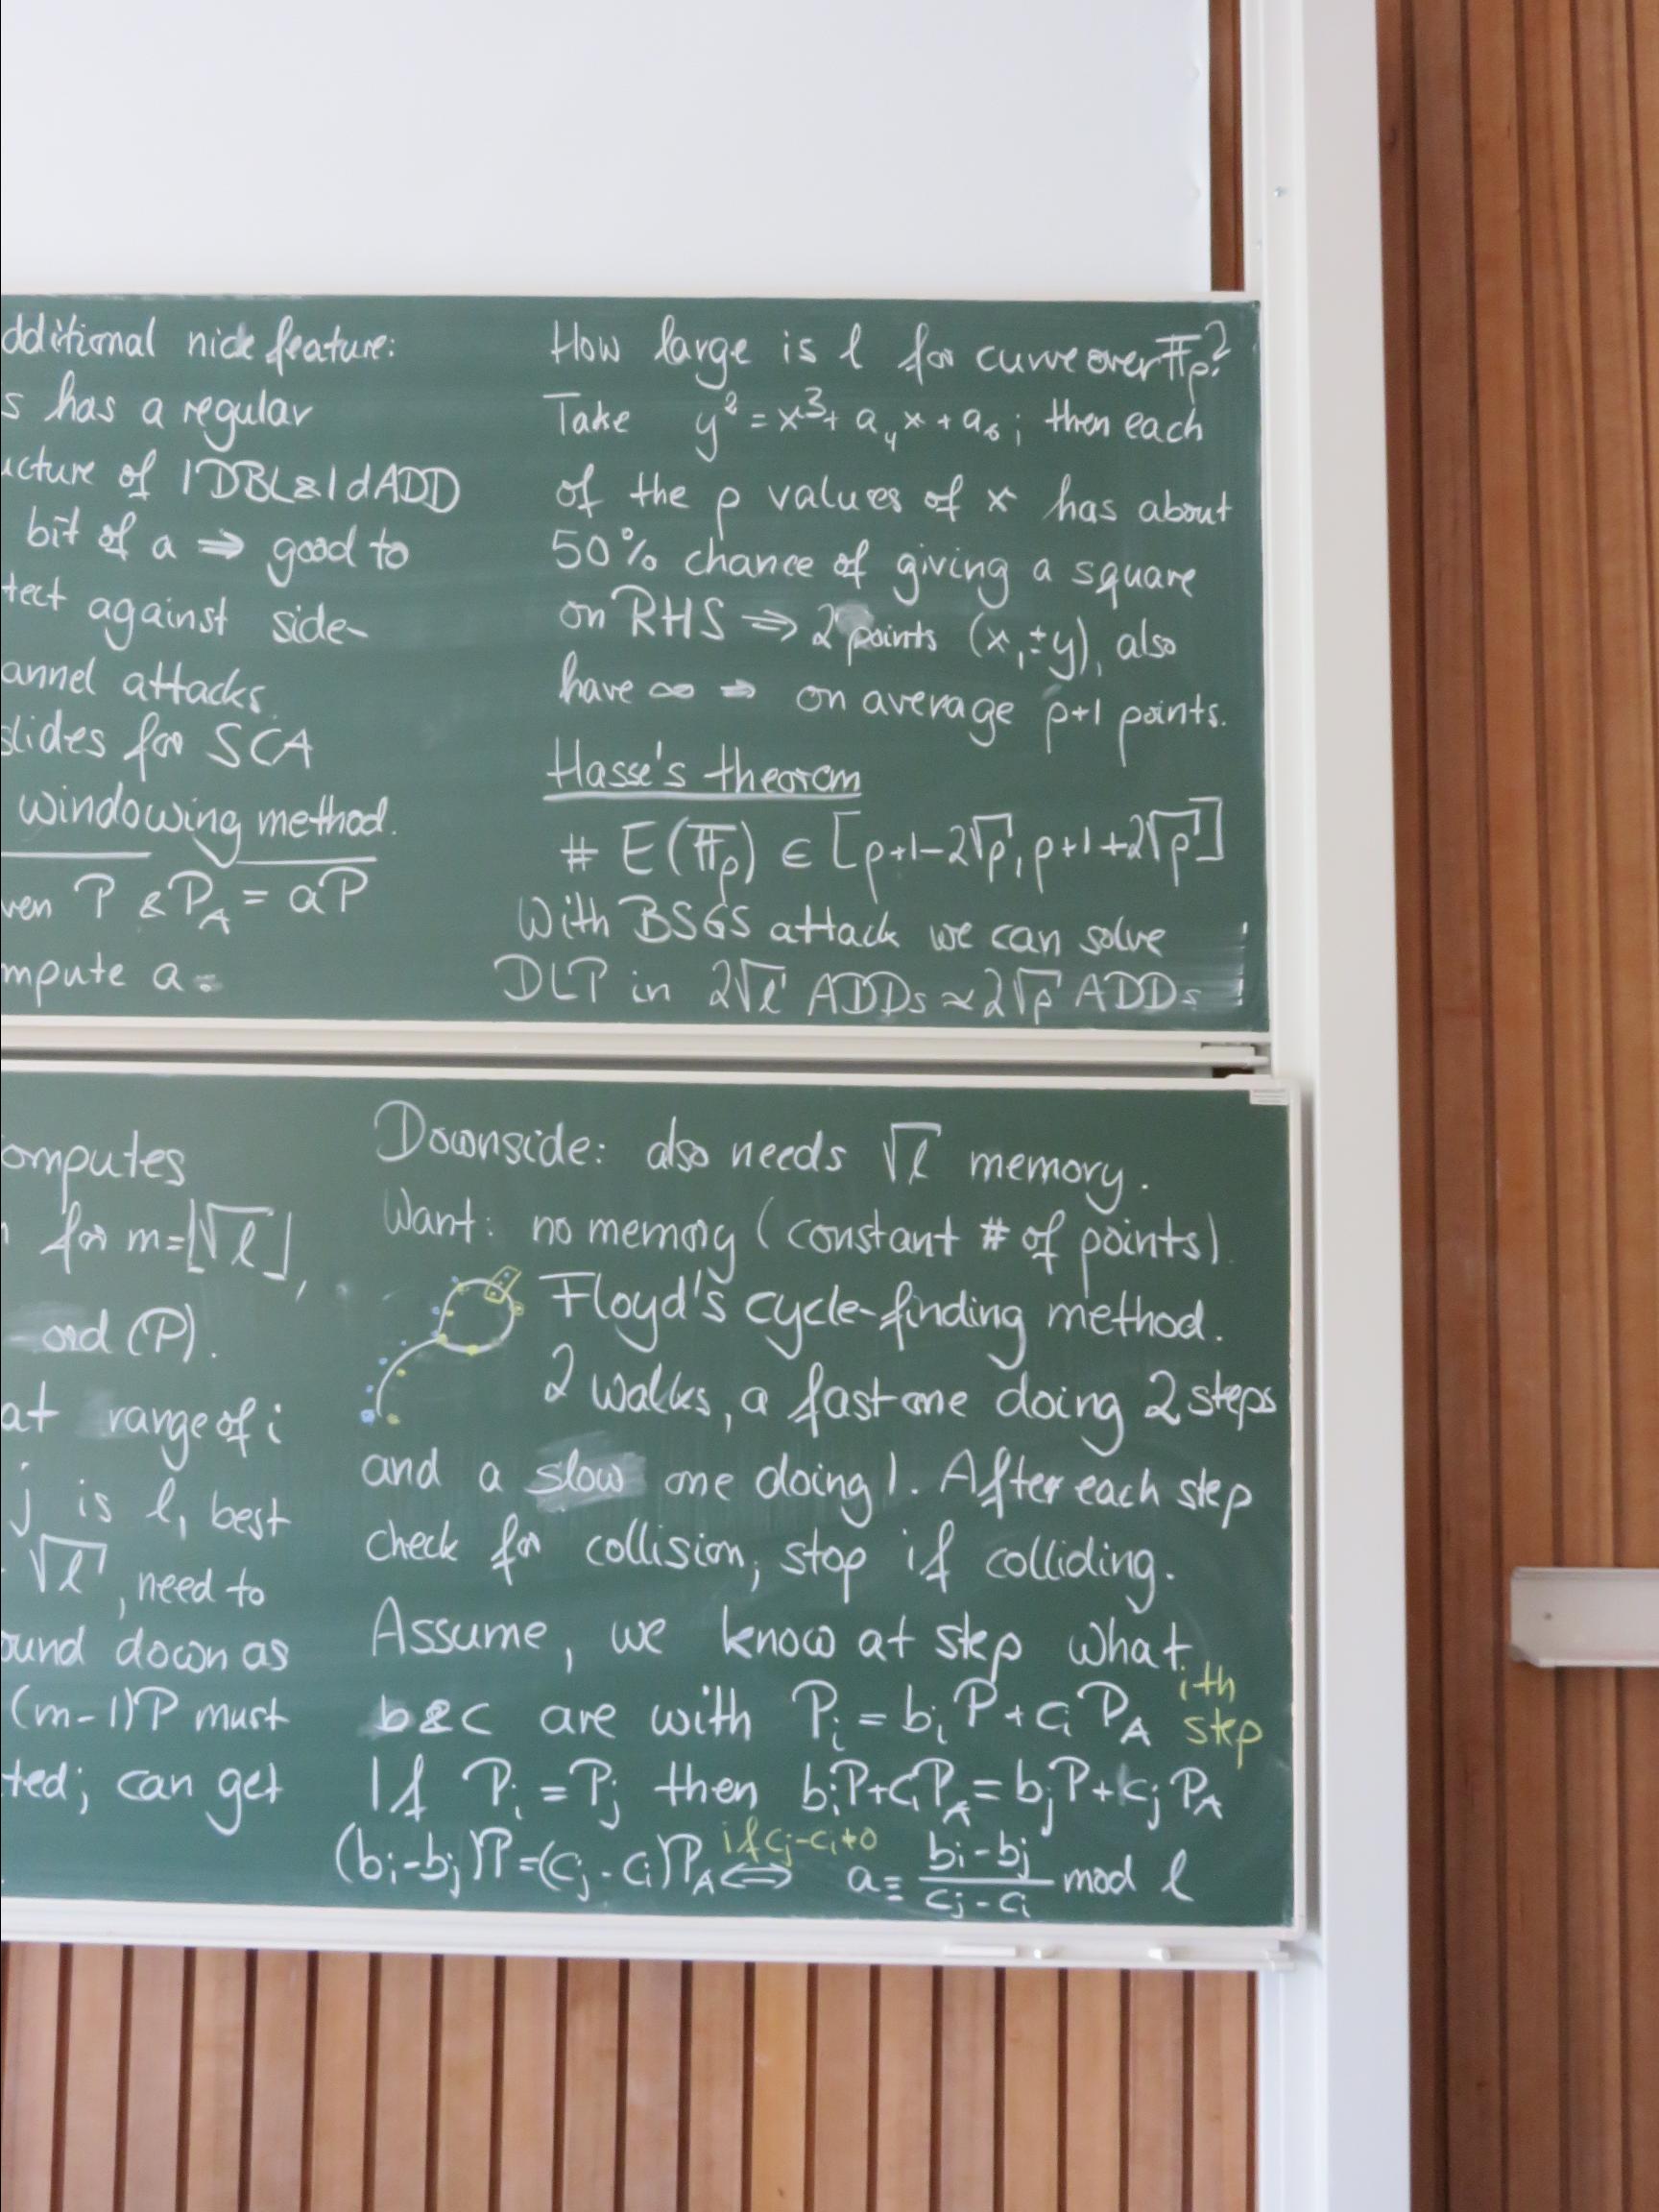 dditional nice feature:
s has a regular
ucture of 1DBL&1dADD
bit of a ⇒ good to
tect against side-
annel attacks.
slides for SCA
windowing method.
ven P & P_A = aP
mpute a.
How large is l for curve over 𝔽_p?
Take y² = x³ + a₄x + a₆; then each
of the p values of x has about
50% chance of giving a square
on RHS ⇒ 2 points (x, ±y), also
have ∞ ⇒ on average p+1 points.
Hasse's theorem
# E(𝔽_p) ∈ [p+1-2√p, p+1+2√p]
With BSGS attack we can solve
DLP in 2√l ADDs ≈ 2√p ADDs
omputes
for m=⌊√l⌋,
ord (P).
at range of i
j is l, best
√l, need to
ound down as
(m-1)P must
ted; can get
Downside: also needs √l memory.
Want: no memory (constant # of points).
Floyd's cycle-finding method.
2 walks, a fast one doing 2 steps
and a slow one doing 1. After each step
check for collision; stop if colliding.
Assume, we know at step what
b&c are with P_i = b_i P + c_i P_A ith step
If P_i = P_j then b_i P + c_i P_A = b_j P + c_j P_A
(b_i - b_j)P = (c_j - c_i)P_A ⟺ if c_j - c_i ≠ 0 a ≡ (b_i - b_j)/(c_j - c_i) mod l